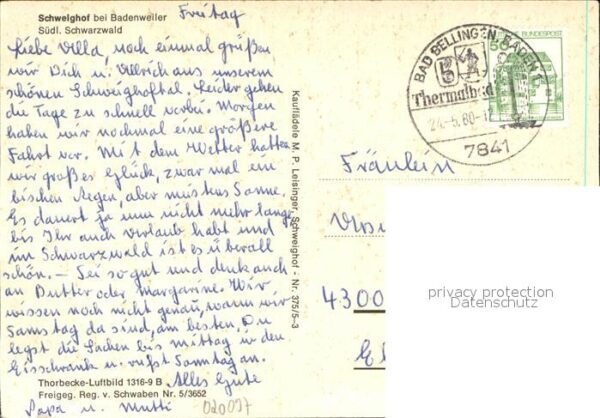 Schweighof bei Badenweiler
Südl. Schwarzwald
Freitag
Liebe Ulla, noch einmal grüßen
wir Dich u. Ullrich aus unserem
schönen Schweighoftal. Leider gehen
die Tage zu schnell vorbei. Morgen
haben wir nochmal eine größere
Fahrt vor. Mit dem Wetter hatten
wir großes Glück, zwar mal ein
bischen Regen, aber meistens Sonne.
Es dauert ja nun nicht mehr lange
bis Ihr auch Urlaub habt und
im Schwarzwald ist es überall
schön. – Sei so gut und denk auch
an Butter oder Margarine. Wir
wissen noch nicht genau, wann wir
Samstag da sind, am besten Du
legst die Sachen bis mittag in den
Eisschrank u. rufst Sonntag an.
Alles Gute
Papa u. Mutti
Thorbecke-Luftbild 1316-9 B
Freigeg. Reg. v. Schwaben Nr. 5/3652
020097
Kauflädele M. P. Leisinger, Schweighof - Nr. 375/5-3
BAD BELLINGEN, BADEN 1
B
Thermalbad
24.-5.80-
7841
50
BUNDESPOST
Fräulein
4300
privacy protection
Datenschutz